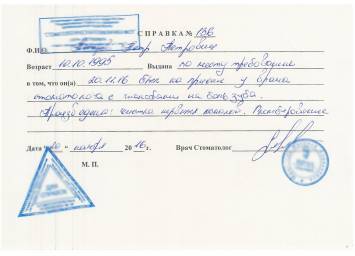 СПРАВКА № 186
Ф.И.О. Петр Петрович
Возраст 10.10.1995 Выдана по месту требования
в том, что он(а) 20.11.16 был на приеме у врача
стоматолога с жалобами на боль зуба.
Произведено: чистка каналов.
Дата «20» ноября 2016 г. Врач Стоматолог
М. П.